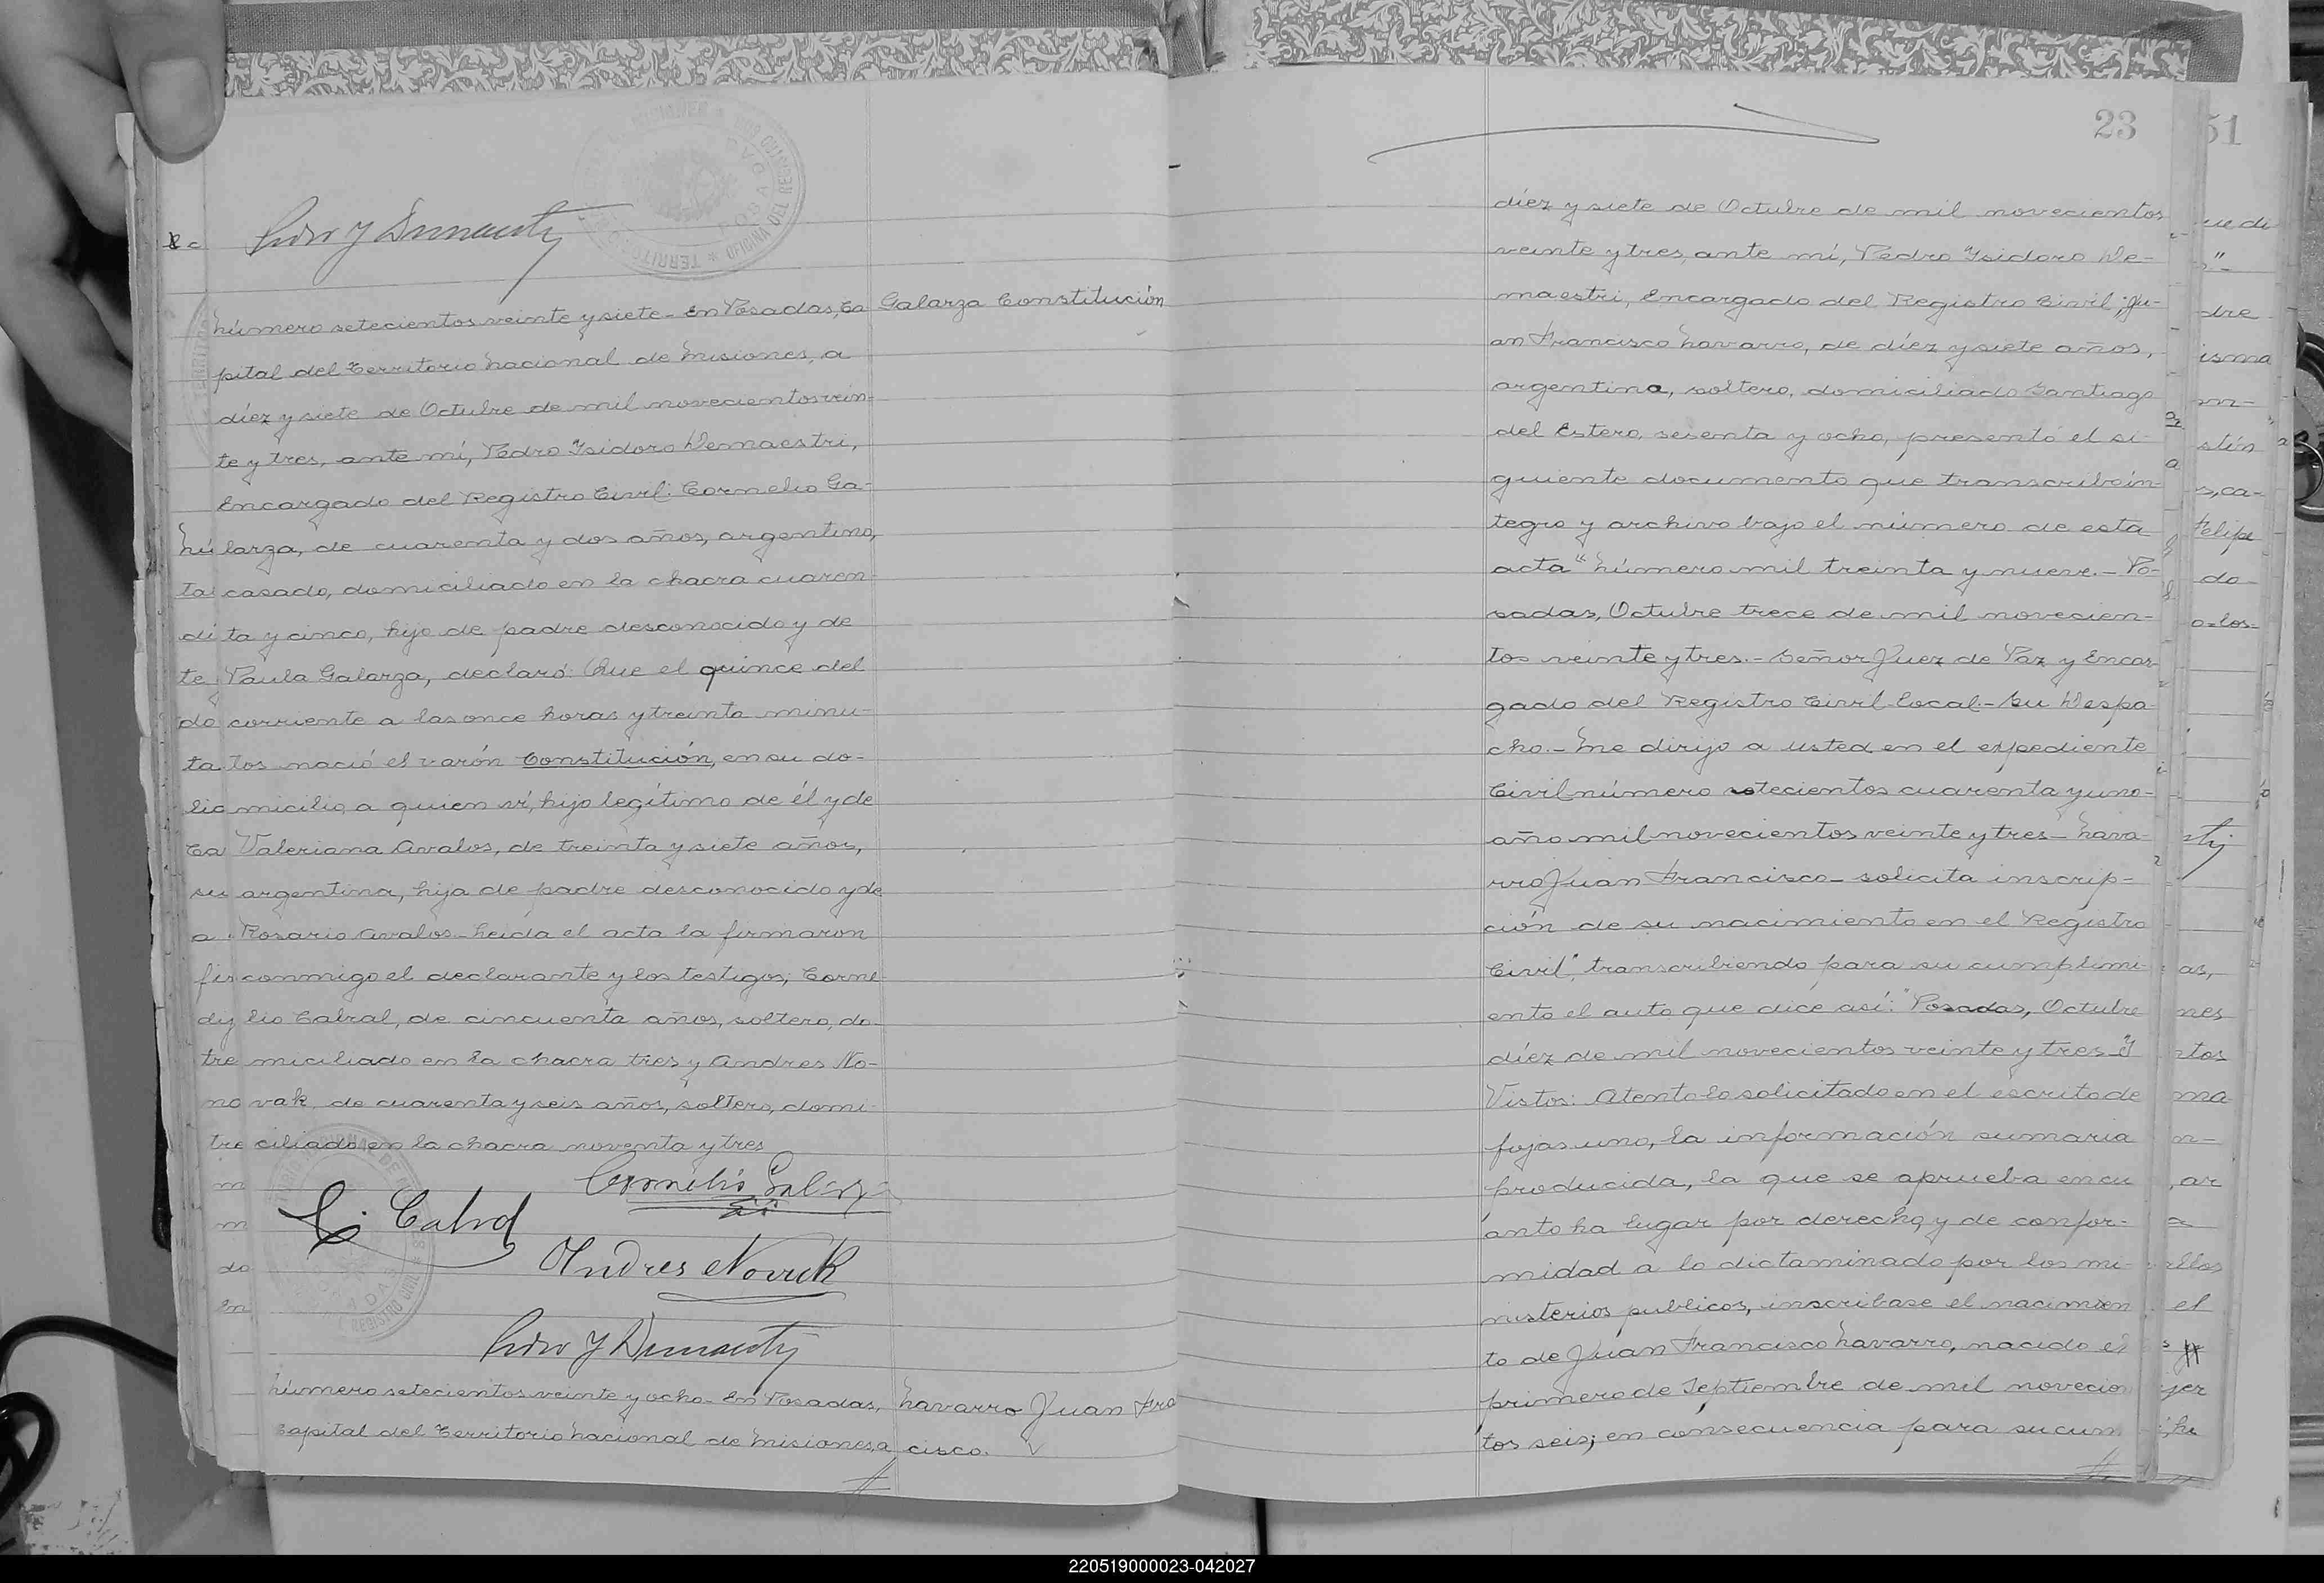 Pedro Y Demaestri
Número setecientos veinte y siete - En Posadas, Ca
Galarza Constitución
pital del Territorio Nacional de Misiones, a
diez y siete de Octubre de mil novecientos vein-
te y tres, ante mí, Pedro Ysidoro Demaestri,
Encargado del Registro Civil: Cornelio Ga-
larza, de cuarenta y dos años, argentino,
casado, domiciliado en la chacra cuaren-
ta y cinco, hijo de padre desconocido y de
Paula Galarza, declaró: Que el quince del
corriente a las once horas y treinta minu-
tos nació el varón Constitución, en su do-
micilio, a quien ví, hijo legítimo de él y de
Valeriana Avalos, de treinta y siete años,
argentina, hija de padre desconocido y de
Rosario Avalos - Leída el acta la firmaron
conmigo el declarante y los testigos; Corne-
lio Cabral, de cincuenta años, soltero, do-
miciliado en la chacra tres y Andres No-
vak, de cuarenta y seis años, soltero, domi-
ciliado en la chacra noventa y tres
Cornelio Galarza
C. Cabral
Andres Novak
Pedro Y Demaestri
Número setecientos veinte y ocho - En Posadas,
Navarro Juan Fra
Capital del Territorio Nacional de Misiones, a
cisco.
23
diez y siete de Octubre de mil novecientos
veinte y tres, ante mí, Pedro Ysidoro De-
maestri, Encargado del Registro Civil; Ju-
an Francisco Navarro, de diez y siete años,
argentino, soltero, domiciliado Santiago
del Estero, sesenta y ocho, presentó el si-
guiente documento que transcribo ín-
tegro y archivo bajo el número de esta
acta "Número mil treinta y nueve. - Po-
sadas, Octubre trece de mil novecien-
tos veinte y tres. - Señor Juez de Paz y Encar-
gado del Registro Civil Local. - Su Despa-
cho. - Me dirijo a usted en el expediente
Civil número setecientos cuarenta y uno -
año mil novecientos veinte y tres - Nava-
rro Juan Francisco - solicita inscrip-
ción de su nacimiento en el Registro
Civil", transcribiendo para su cumplimi-
ento el auto que dice así: "Posadas, Octubre
diez de mil novecientos veinte y tres - Y
Vistos: Atento lo solicitado en el escrito de
fojas uno, la información sumaria
producida, la que se aprueba en cu
anto ha lugar por derecho, y de confor-
midad a lo dictaminado por los mi-
nisterios publicos, inscribase el nacimien
to de Juan Francisco Navarro, nacido el
primero de Septiembre de mil novecien
tos seis; en consecuencia para su cum
51
220519000023-042027